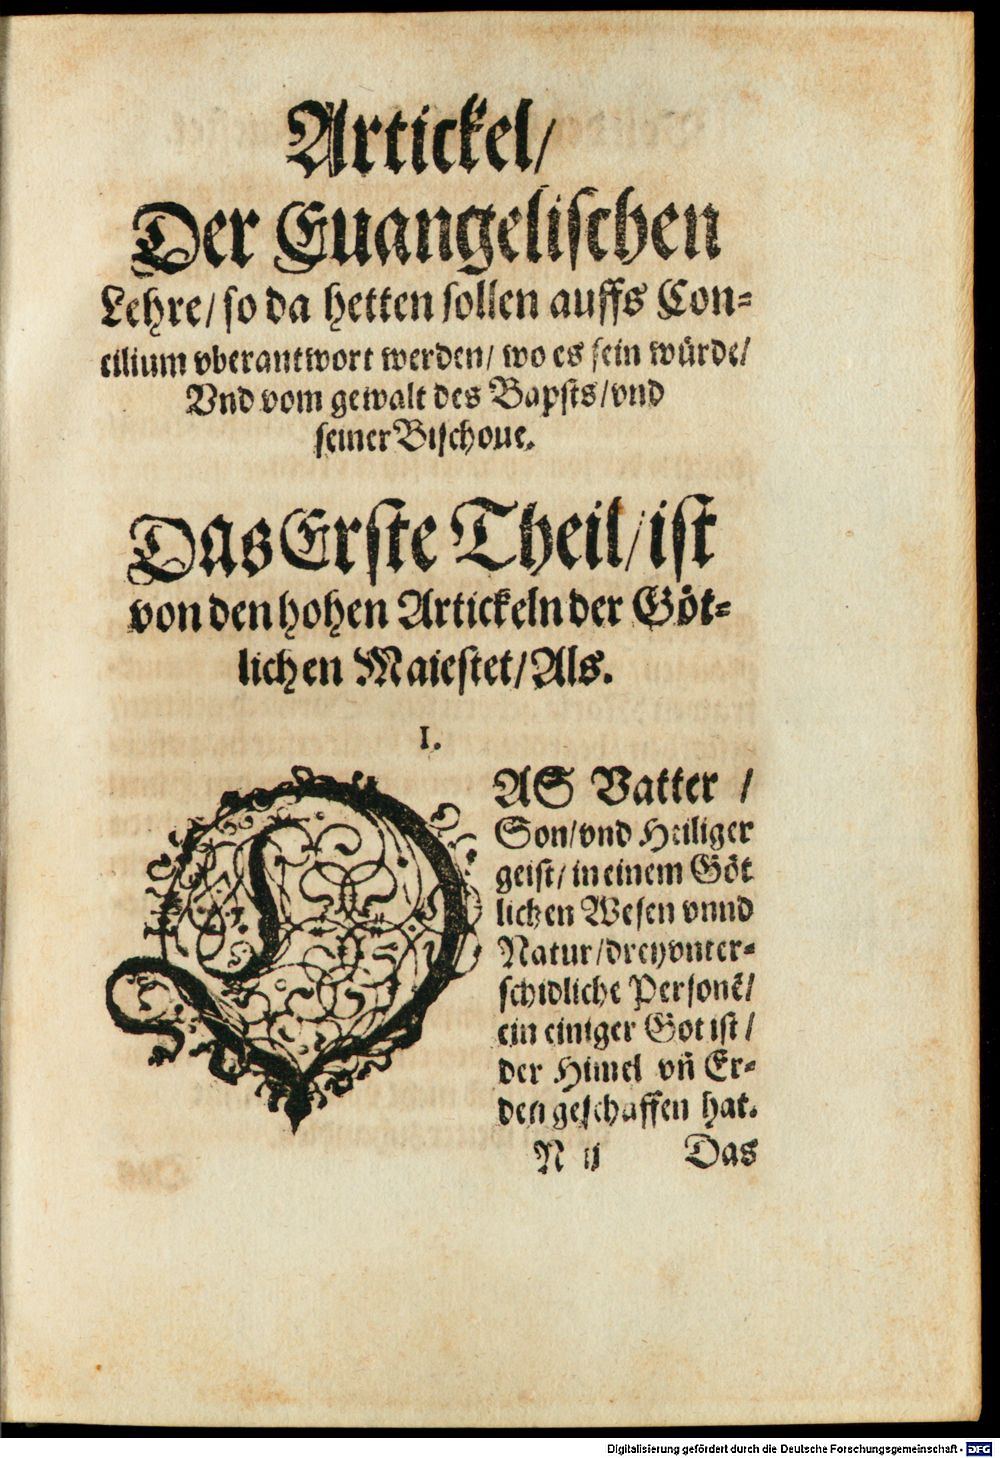 Artickel/
Der Euangelischen
Lehre/ so da hetten sollen auffs Con-
cilium vberantwort werden/ wo es sein würde/
Vnd vom gewalt des Bapsts/ vnd
seiner Bischoue.
Das Erste Theil/ ist
von den hohen Artickeln der Göt-
lichen Maiestet/ Als.
I.
DAS Vatter /
Son/ vnd Heiliger
geist/ in einem Göt
lichen Wesen vnnd
Natur/ drey vnter-
schidliche Personẽ/
ein einiger Got ist /
der Himel vñ Er-
den geschaffen hat.
N ij Das
Digitalisierung gefördert durch die Deutsche Forschungsgemeinschaft - DFG